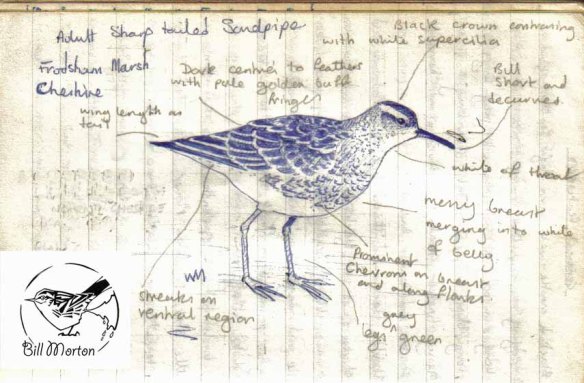 Adult Sharp tailed Sandpipe
Frodsham Marsh
Cheshire
Black crown contrasing
with white supercilia
Dark centres to feathers
with pale golden buff
fringes
Bill
Short and
decurved.
wing length as
tail
white of throat
messy breast
merging into white
of belly
Prominent
Chevrons on breast
and along flanks
grey
legs ^ green
streaks on
ventral region
WM
Bill Morton